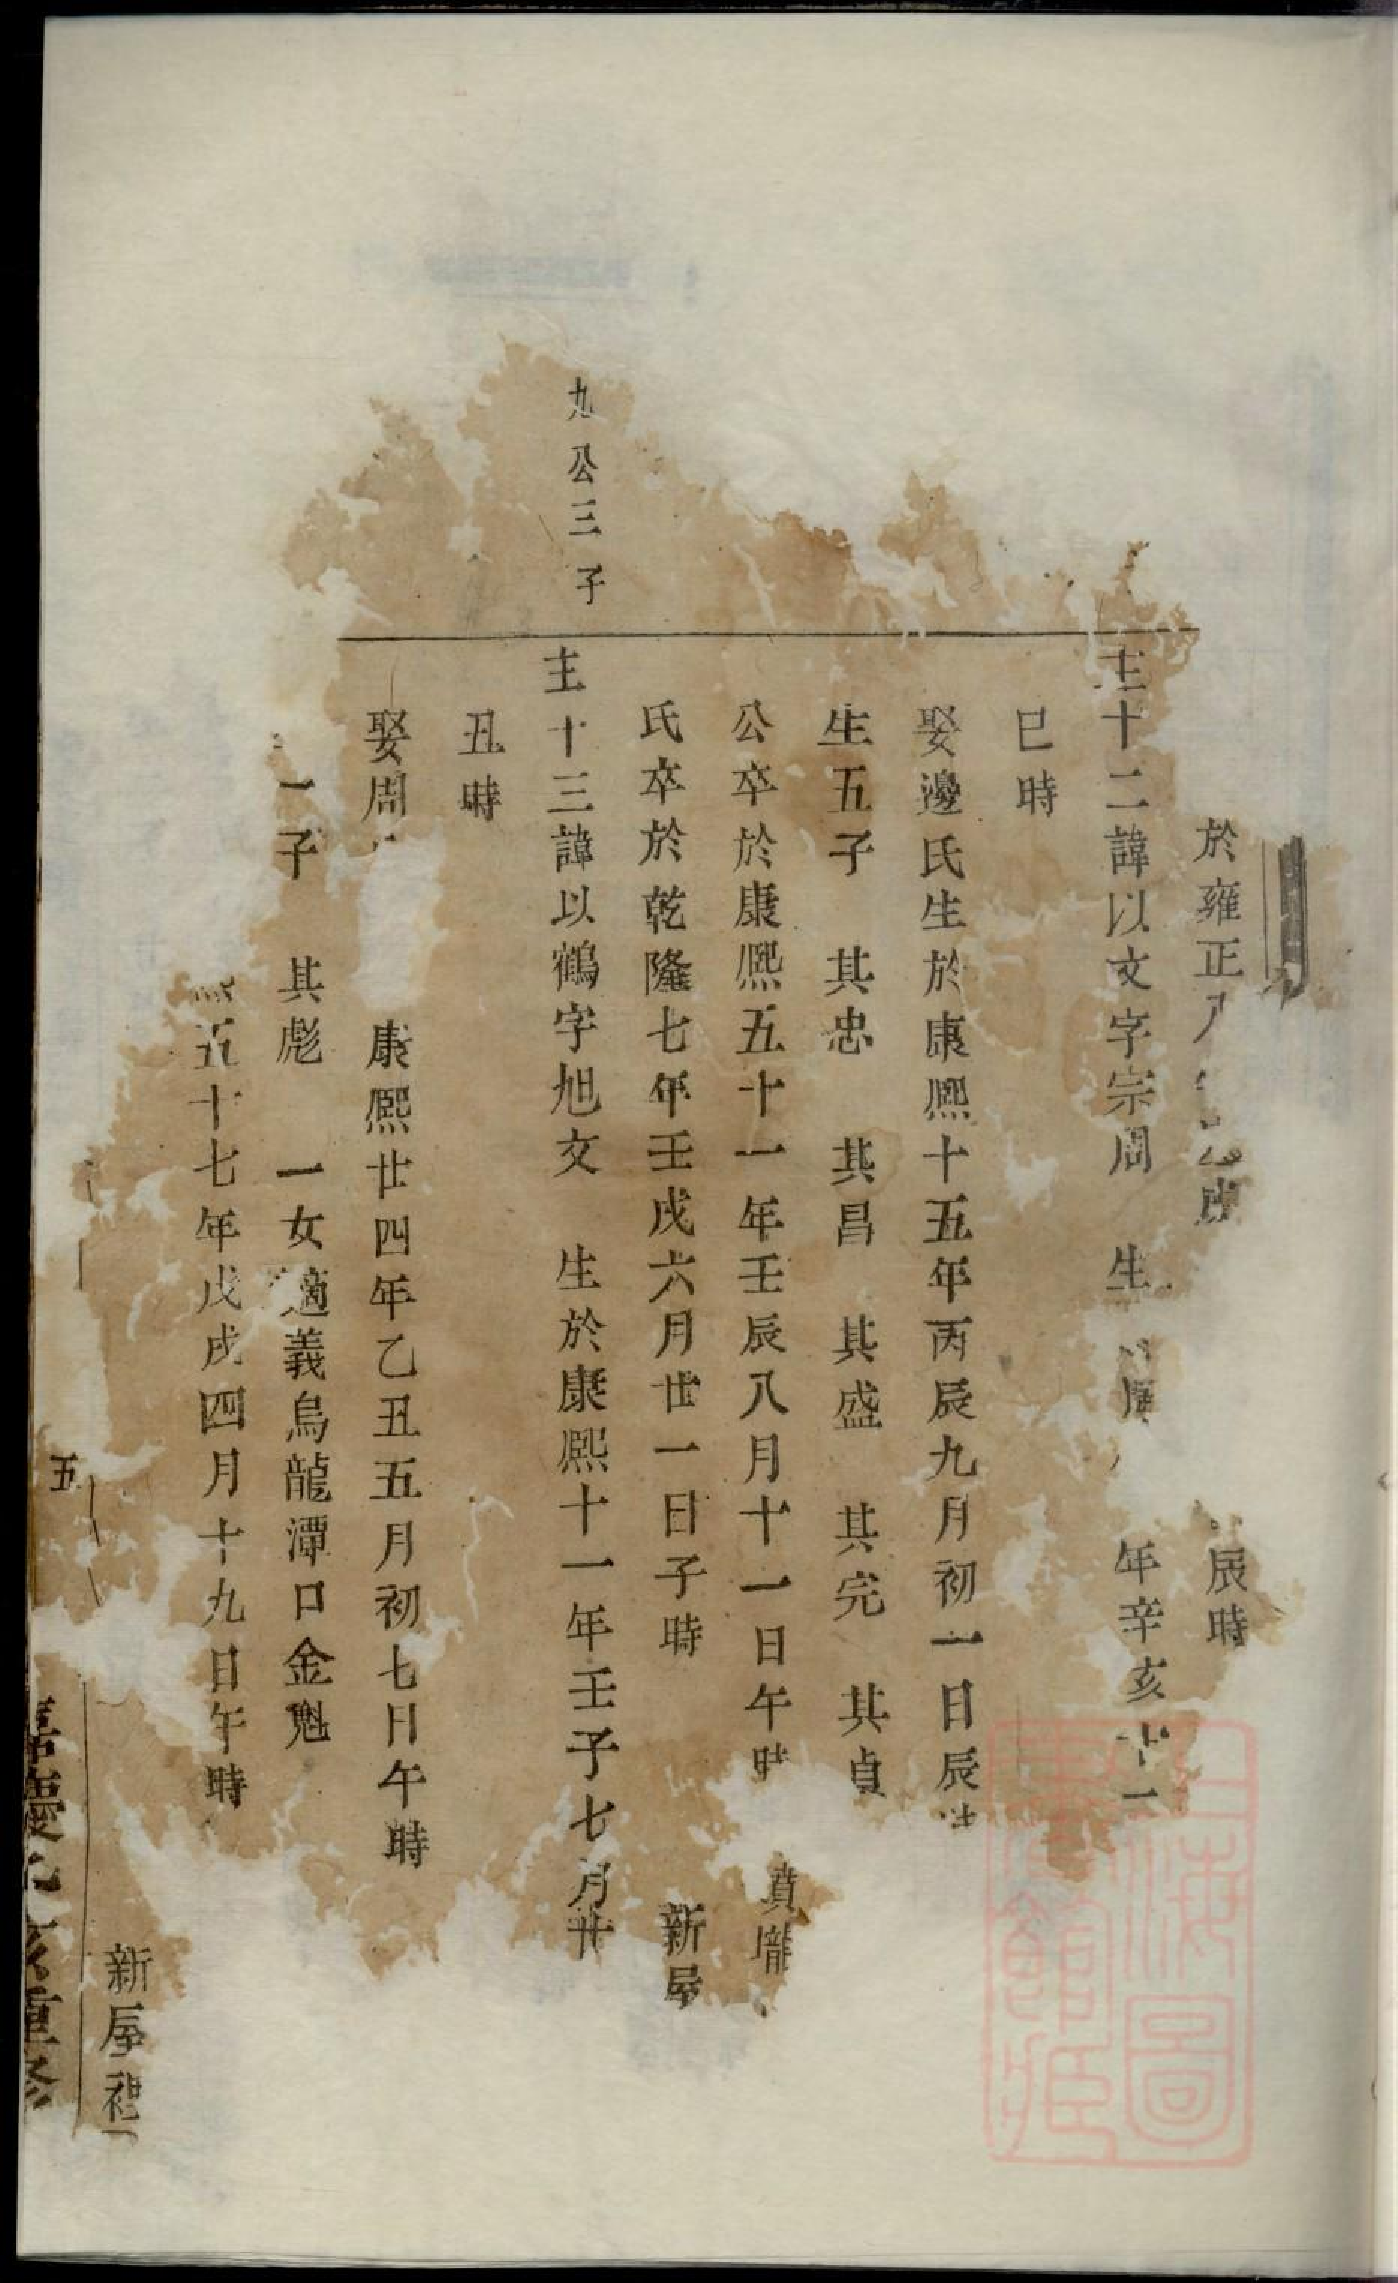 於雍正八 戌 辰時
十二諱以文字宗周 生 年辛亥十一
巳時
娶邊氏生於康熙十五年丙辰九月初一日辰
生五子 其忠 其昌 其盛 其完 其貞
公卒於康熙五十一年壬辰八月十一日午時
氏卒於乾隆七年壬戌六月廿一日子時 新屋
九公三子
十三諱以鶴字旭文 生於康熙十一年壬子七月廿
丑時
娶周 康熙廿四年乙丑五月初七日午時
一子 其彪 一女適義烏龍潭口金魁
五十七年戊戌四月十九日午時
新屋
五
嘉慶 重修
上海圖書館藏